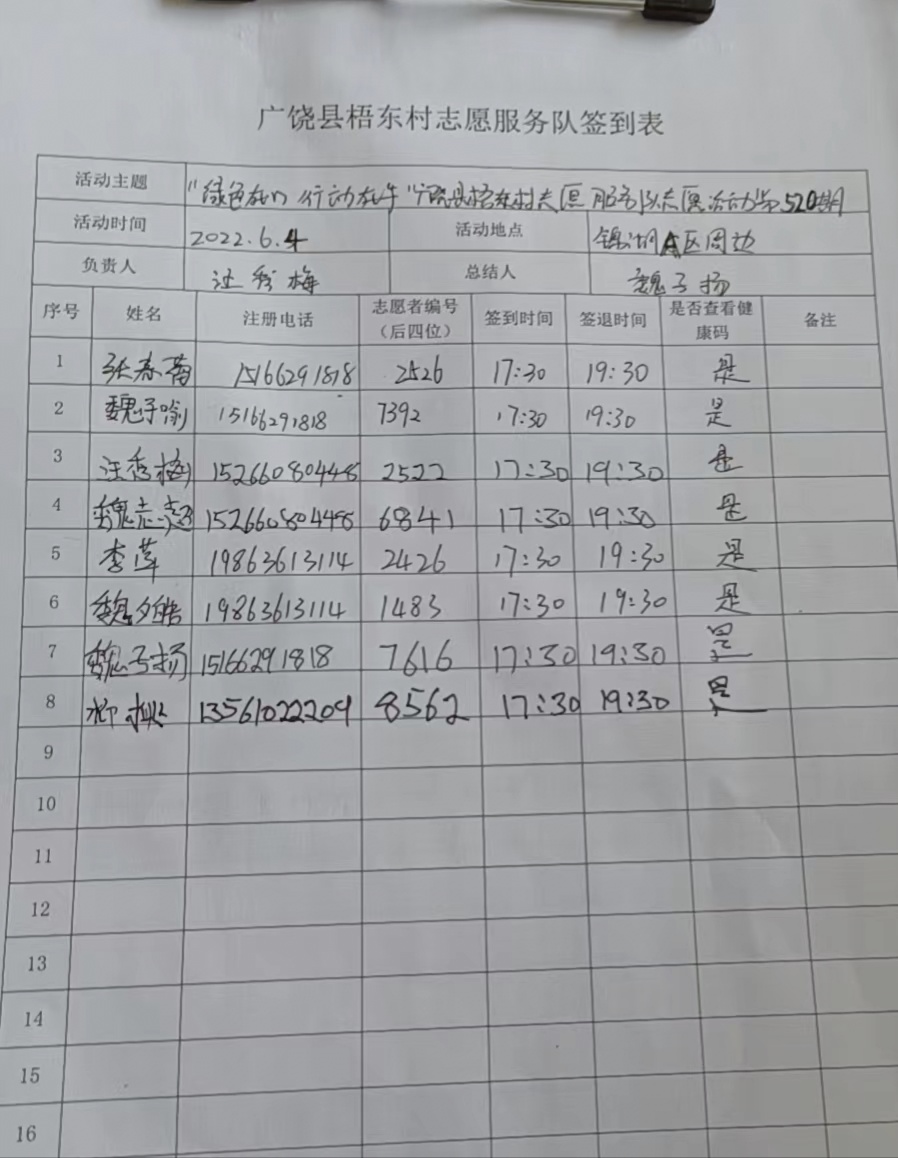 广饶县梧东村志愿服务队签到表
活动主题 "绿色在心 行动在手"广饶县梧东村志愿服务队志愿活动第520期
活动时间 2022.6.4 活动地点 锦湖A区周边
负责人 汪秀梅 总结人 魏子扬
序号 姓名 注册电话 志愿者编号（后四位） 签到时间 签退时间 是否查看健康码 备注
1 张春苗 15166291818 2526 17:30 19:30 是
2 魏子喻 15166291818 7392 17:30 19:30 是
3 汪秀梅 152660804448 2522 17:30 19:30 是
4 魏志超 152660804498 6841 17:30 19:30 是
5 李萍 19863613114 2426 17:30 19:30 是
6 魏夕皓 19863613114 1483 17:30 19:30 是
7 魏子扬 15166291818 7616 17:30 19:30 是
8 13561022209 8562 17:30 19:30 是
9
10
11
12
13
14
15
16